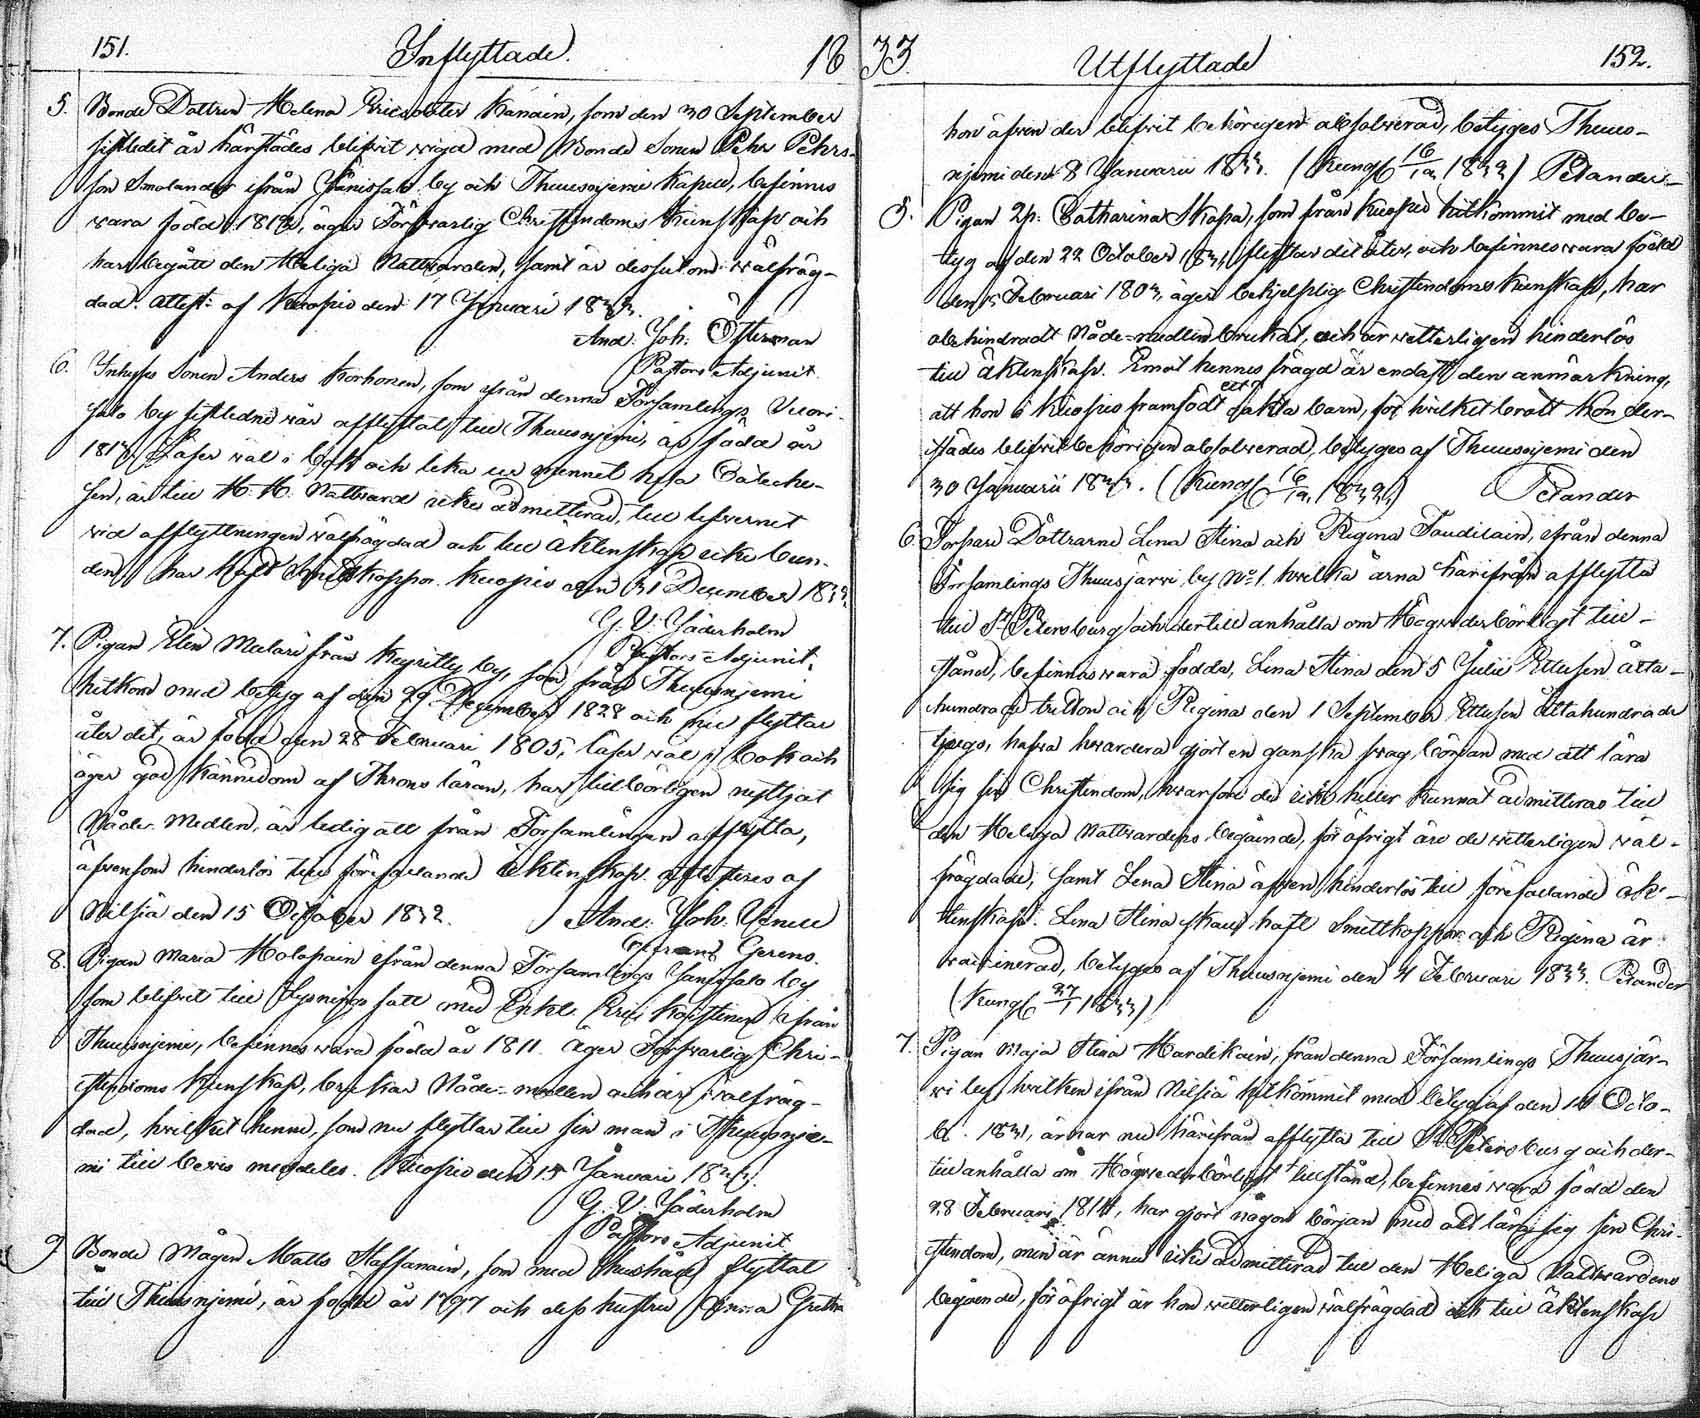 151. Inflyttade. 18
5. Bonde Dottren Helena Ericsdotter Kanain, som den 30 September
sistledit år härstädes blifvit wigd med Bonde Sonen Pehr Pehrs-
son Smolander ifrån Jänissalo by och Thuusnjemi Kapell, befinnes
wara född 1812, äger Försvarlig Christendoms Kunskap och
har begått den Heliga Nattvarden, samt är dessutom wälfräg-
dad. Attest: af Kuopio den 17 Januari 1833.
And. Joh. Österman
Pastors Adjunct.
6. Inhyses Sonen Anders Korhonen, som ifrån denna Församlings Vuori-
salo by sistledne vår afflyttat till Thuusnjemi, är född år
181 Läser väl i bok och lika ur minnet hela Cateche-
sen, är till H. H. Nattvard icke admitterad, till lefvernet
vid afflyttningen välfrägdad och till äktenskap icke bun-
den, har haft Smittkoppor. Kuopio den 31 December 1832.
G. V. Jäderholm
Pastors-Adjunct.
7. Pigan Elin Malari från Keyritty by, som från Thuusnjemi
hitkom med betyg af den 29 December 1828 och nu flyttar
åter dit, är född den 28 Februari 1805, läser väl i bok och
äger god kännedom af Throns läran, har tillbörligen nyttjat
Nåde-Medlen, är ledig att från Församlingen afflytta,
äfvensom hinderlös till förefallande äktenskap. Attesteres af
Nilsiä den 15 October 1832. And. Joh. Venell
Gerens.
8. Pigan Maria Holopain ifrån denna Församlings Janissalo by
som blifvit till Lysnings satt med Enkl. Eric Koistinen ifrån
Thuusnjemi, befinnes wara född år 1811. äger Försvarlig Chri-
stendoms Kunskap, brukar Nåde-medlen och är wälfräg-
dad, hvilket henne, som nu flyttar till sin man i Thuusnje-
mi till bevis meddeles. Kuopio den 15 Januari 1833.
G. V. Jäderholm
Pastors Adjunct
9. Bonde Mågen Matts Staffanain, som med hushåll flyttat
till Thuusnjemi, är född år 1797 och dess hustru Anna Gretha
33. Utflyttade 152.
hon äfven der blifvit behörigen absolverad, betyges Thuus-
njemi den 8 Januarii 1833. (Kungl. 16/12 1832) Pelander
5. Pigan Catharina Skapa, som från Kuopio hitkommit med be-
tyg af den 22 October 1831 flyttar dit åter, och befinnes wara född
den Februari 1803, äger behjelplig Christendoms kunskap, har
obehindradt Nåde-medlen brukat, och är vetterligen hinderlös
till äktenskap. Emot hennes frägd är endast den anmärkning,
att hon i Kuopio framfödt ett oäkta barn, för hvilket brott hon der-
städes blifvit behörigen absolverad, betyges af Thuusnjemi den
30 Januarii 1833. (Kungl. 16/12 1832) Pelander
6. Torpare Döttrarne Lena Stina och Regina Taudilain, ifrån denna
Församlings Thuusjärvi by No. 1. hvilka ärna härifrån afflytta
till St. Petersburg och dertill anhålla om Högvederbörligt till-
stånd, befinnas wara födda, Lena Stina den 5 Julii Ettusen åtta-
hundrade tretton och Regina den 1 September Ettusen Åttahundrade
tjugo, hafva hvardera gjort en ganska svag början med att lära
sig sin Christendom, hvarföre de icke heller kunnat admitteras till
den Heliga Nattvardens begående, för öfrigt äro de vetterligen väl-
frägdade, samt Lena Stina äfven hinderlös till förefallande äk-
tenskap. Lena Stina skall haft Smittkoppor och Regina är
vaccinerad, betyges af Thuusnjemi den 4 Februari 1833. Pelander
(Kungl. 27/1 1833)
7. Pigan Maja Stina Hardikain, från denna Församlings Thuusjär-
vi by, hvilken ifrån Nilsiä hitkommit med betyg af den 14 Octo-
b. 1831, ärnar nu härifrån afflytta till St. Petersburg och der-
till anhålla om Högvederbörligt tillstånd, befinnes wara född den
28 Februari 1814, har gjort någon början med att lära sig sin Chri-
stendom, men är ännu icke admitterad till den Heliga Nattvardens
begående, för öfrigt är hon vetterligen välfrägdad och till äktenskap